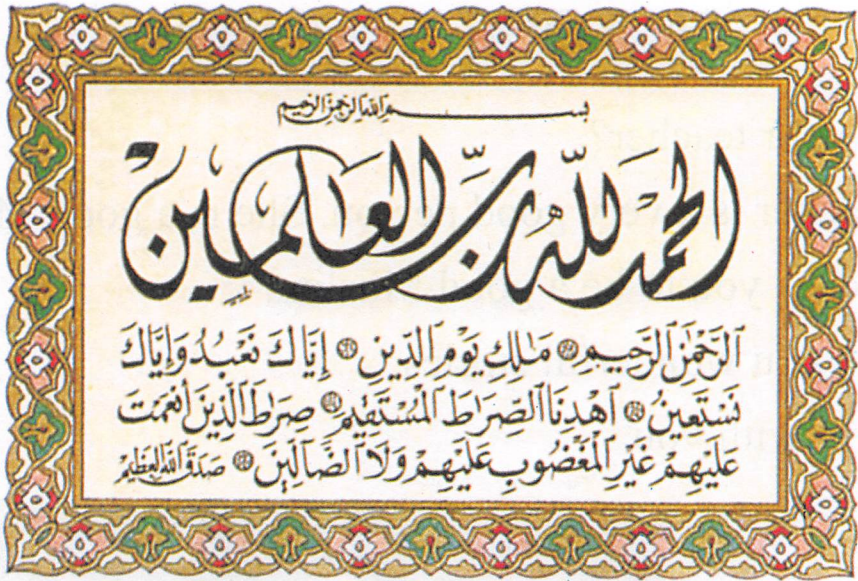 بسم الله الرحمن الرحيم
الحمد لله رب العالمين
ٱلرَّحْمَٰنِ ٱلرَّحِيمِ ۞ مَٰلِكِ يَوْمِ ٱلدِّينِ ۞ إِيَّاكَ نَعْبُدُ وَإِيَّاكَ
نَسْتَعِينُ ۞ ٱهْدِنَا ٱلصِّرَٰطَ ٱلْمُسْتَقِيمَ ۞ صِرَٰطَ ٱلَّذِينَ أَنْعَمْتَ
عَلَيْهِمْ غَيْرِ ٱلْمَغْضُوبِ عَلَيْهِمْ وَلَا ٱلضَّآلِّينَ ۞ صدق الله العظيم